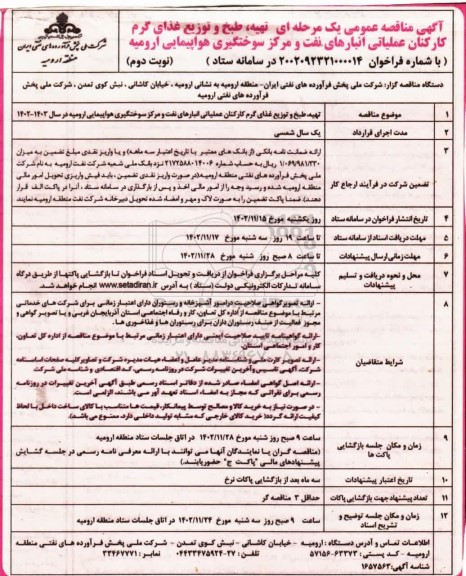 آگهی مناقصه عمومی یک مرحله ای تهیه، طبخ و توزیع غذای گرم
کارکنان عملیاتی انبارهای نفت و مرکز سوختگیری هواپیمایی ارومیه
( با شماره فراخوان ۲۰۰۲۰۹۲۳۲۱۰۰۰۰۱۴ در سامانه ستاد ) (نوبت دوم)
شرکت ملی پخش فرآورده های نفتی ایران
منطقه ارومیه
دستگاه مناقصه گزار: شرکت ملی پخش فرآورده های نفتی ایران- منطقه ارومیه به نشانی ارومیه ، خیابان کاشانی ، نبش کوی تمدن ، شرکت ملی پخش
فرآورده های نفتی ارومیه
۱ موضوع مناقصه تهیه، طبخ و توزیع غذای گرم کارکنان عملیاتی انبارهای نفت و مرکز سوختگیری هواپیمایی ارومیه در سال ۱۴۰۳-۱۴۰۲
۲ مدت اجرای قرارداد یک سال شمسی
۳ تضمین شرکت در فرآیند ارجاع کار ارائه ضمانت نامه بانکی (از بانک های معتبر با تاریخ اعتبار سه ماهه) و یا واریز نقدی مبلغ تضمین به میزان
۱/۰۶۹/۹۸۱/۳۳۰ ریال به حساب شماره ۲۱۷۲۵۸۸۰۱۴۰۰۶ نزد بانک ملی شعبه شرکت نفت ارومیه به نام شرکت
ملی پخش فرآورده های نفتی منطقه ارومیه(در صورت واریز نقدی تضمین، باید فیش واریزی تحویل امور مالی
منطقه ارومیه شده و رسید وجه را از امور مالی اخذ و پس از بارگذاری در سامانه ستاد ، آنرا در پاکت الف قرار
دهند). ضمنا پاکت تضمین را به صورت لاک و مهر و امضاء شده تحویل دبیرخانه شرکت نفت منطقه ارومیه نمایند.
۴ تاریخ انتشار فراخوان در سامانه ستاد روز یکشنبه مورخ ۱۴۰۲/۱۱/۱۵
۵ مهلت دریافت اسناد از سامانه ستاد تا ساعت ۱۹ روز سه شنبه مورخ ۱۴۰۲/۱۱/۱۷
۶ مهلت زمانی ارسال پیشنهادات تا ساعت ۸ صبح روز شنبه مورخ ۱۴۰۲/۱۱/۲۸
۷ محل و نحوه دریافت و تسلیم پیشنهادات کلیه مراحل برگزاری فراخوان از دریافت و تحویل اسناد فراخوان تا بازگشایی پاکتها از طریق درگاه
سامانه تدارکات الکترونیکی دولت (ستاد) به آدرس www.setadiran.ir انجام خواهد شد.
۸ شرایط متقاضیان - ارائه تصویر گواهی صلاحیت در امور آشپزخانه و رستوران دارای اعتبار زمانی برای شرکت های خدماتی
مرتبط با موضوع مناقصه از اداره کل تعاون، کار و رفاه اجتماعی استان آذربایجان غربی و یا تصویر گواهی و
مجوز فعالیت از صنف رستوران داران برای رستوران ها و غذاخوری ها.
- ارائه گواهینامه تایید صلاحیت ایمنی دارای اعتبار زمانی مرتبط با موضوع مناقصه از اداره کل تعاون،
کار و امور اجتماعی استان
- ارائه تصویر کارت ملی و شناسنامه مدیر عامل و اعضاء هیات مدیره شرکت و تصاویر کلیه صفحات اساسنامه
شرکت، آگهی تاسیس و آخرین تغییرات شرکت در روزنامه رسمی، کد اقتصادی و شناسه ملی شرکت
- ارائه اصل گواهی امضاء صادر شده از دفاتر اسناد رسمی طبق آگهی آخرین تغییرات در روزنامه
رسمی برای نفراتی که مجاز به امضاء اسناد تعهد آور می باشند، الزامی است.
- در صورت نیاز به خرید کالا و مصالح توسط پیمانکار، قیمت ها متناسب با کالای ساخت داخل با لحاظ
کیفیت ارائه گردد( خرید کالای خارجی که مشابه تولید داخلی دارد، ممنوع می باشد).
۹ زمان و مکان جلسه بازگشایی پاکت ها ساعت ۹ صبح روز شنبه مورخ ۱۴۰۲/۱۱/۲۸ در اتاق جلسات ستاد منطقه ارومیه
(مناقصه گران یا نمایندگان آنها می توانند با ارائه معرفی نامه رسمی در جلسه گشایش
پیشنهادهای مالی "پاکت ج" حضور یابند.)
۱۰ تاریخ اعتبار پیشنهادات سه ماه بعد از بازگشایی پاکات نرخ
۱۱ تعداد پیشنهاد جهت بازگشایی پاکات حداقل ۳ مناقصه گر
۱۲ زمان و مکان جلسه توضیح و تشریح اسناد ساعت ۹ صبح روز سه شنبه مورخ ۱۴۰۲/۱۱/۲۴ در اتاق جلسات ستاد منطقه ارومیه
اطلاعات تماس و آدرس دستگاه : ارومیه - خیابان کاشانی - نبش کوی تمدن - شرکت ملی پخش فرآورده های نفتی منطقه
ارومیه - کد پستی : ۶۳۳۷۳-۵۷۱۵۶ تلفن : ۳۷-۰۴۴۳۳۴۷۵۹۲۴ نمابر : ۳۳۴۶۷۷۷۱
شناسه آگهی: ۱۶۵۷۵۶۳